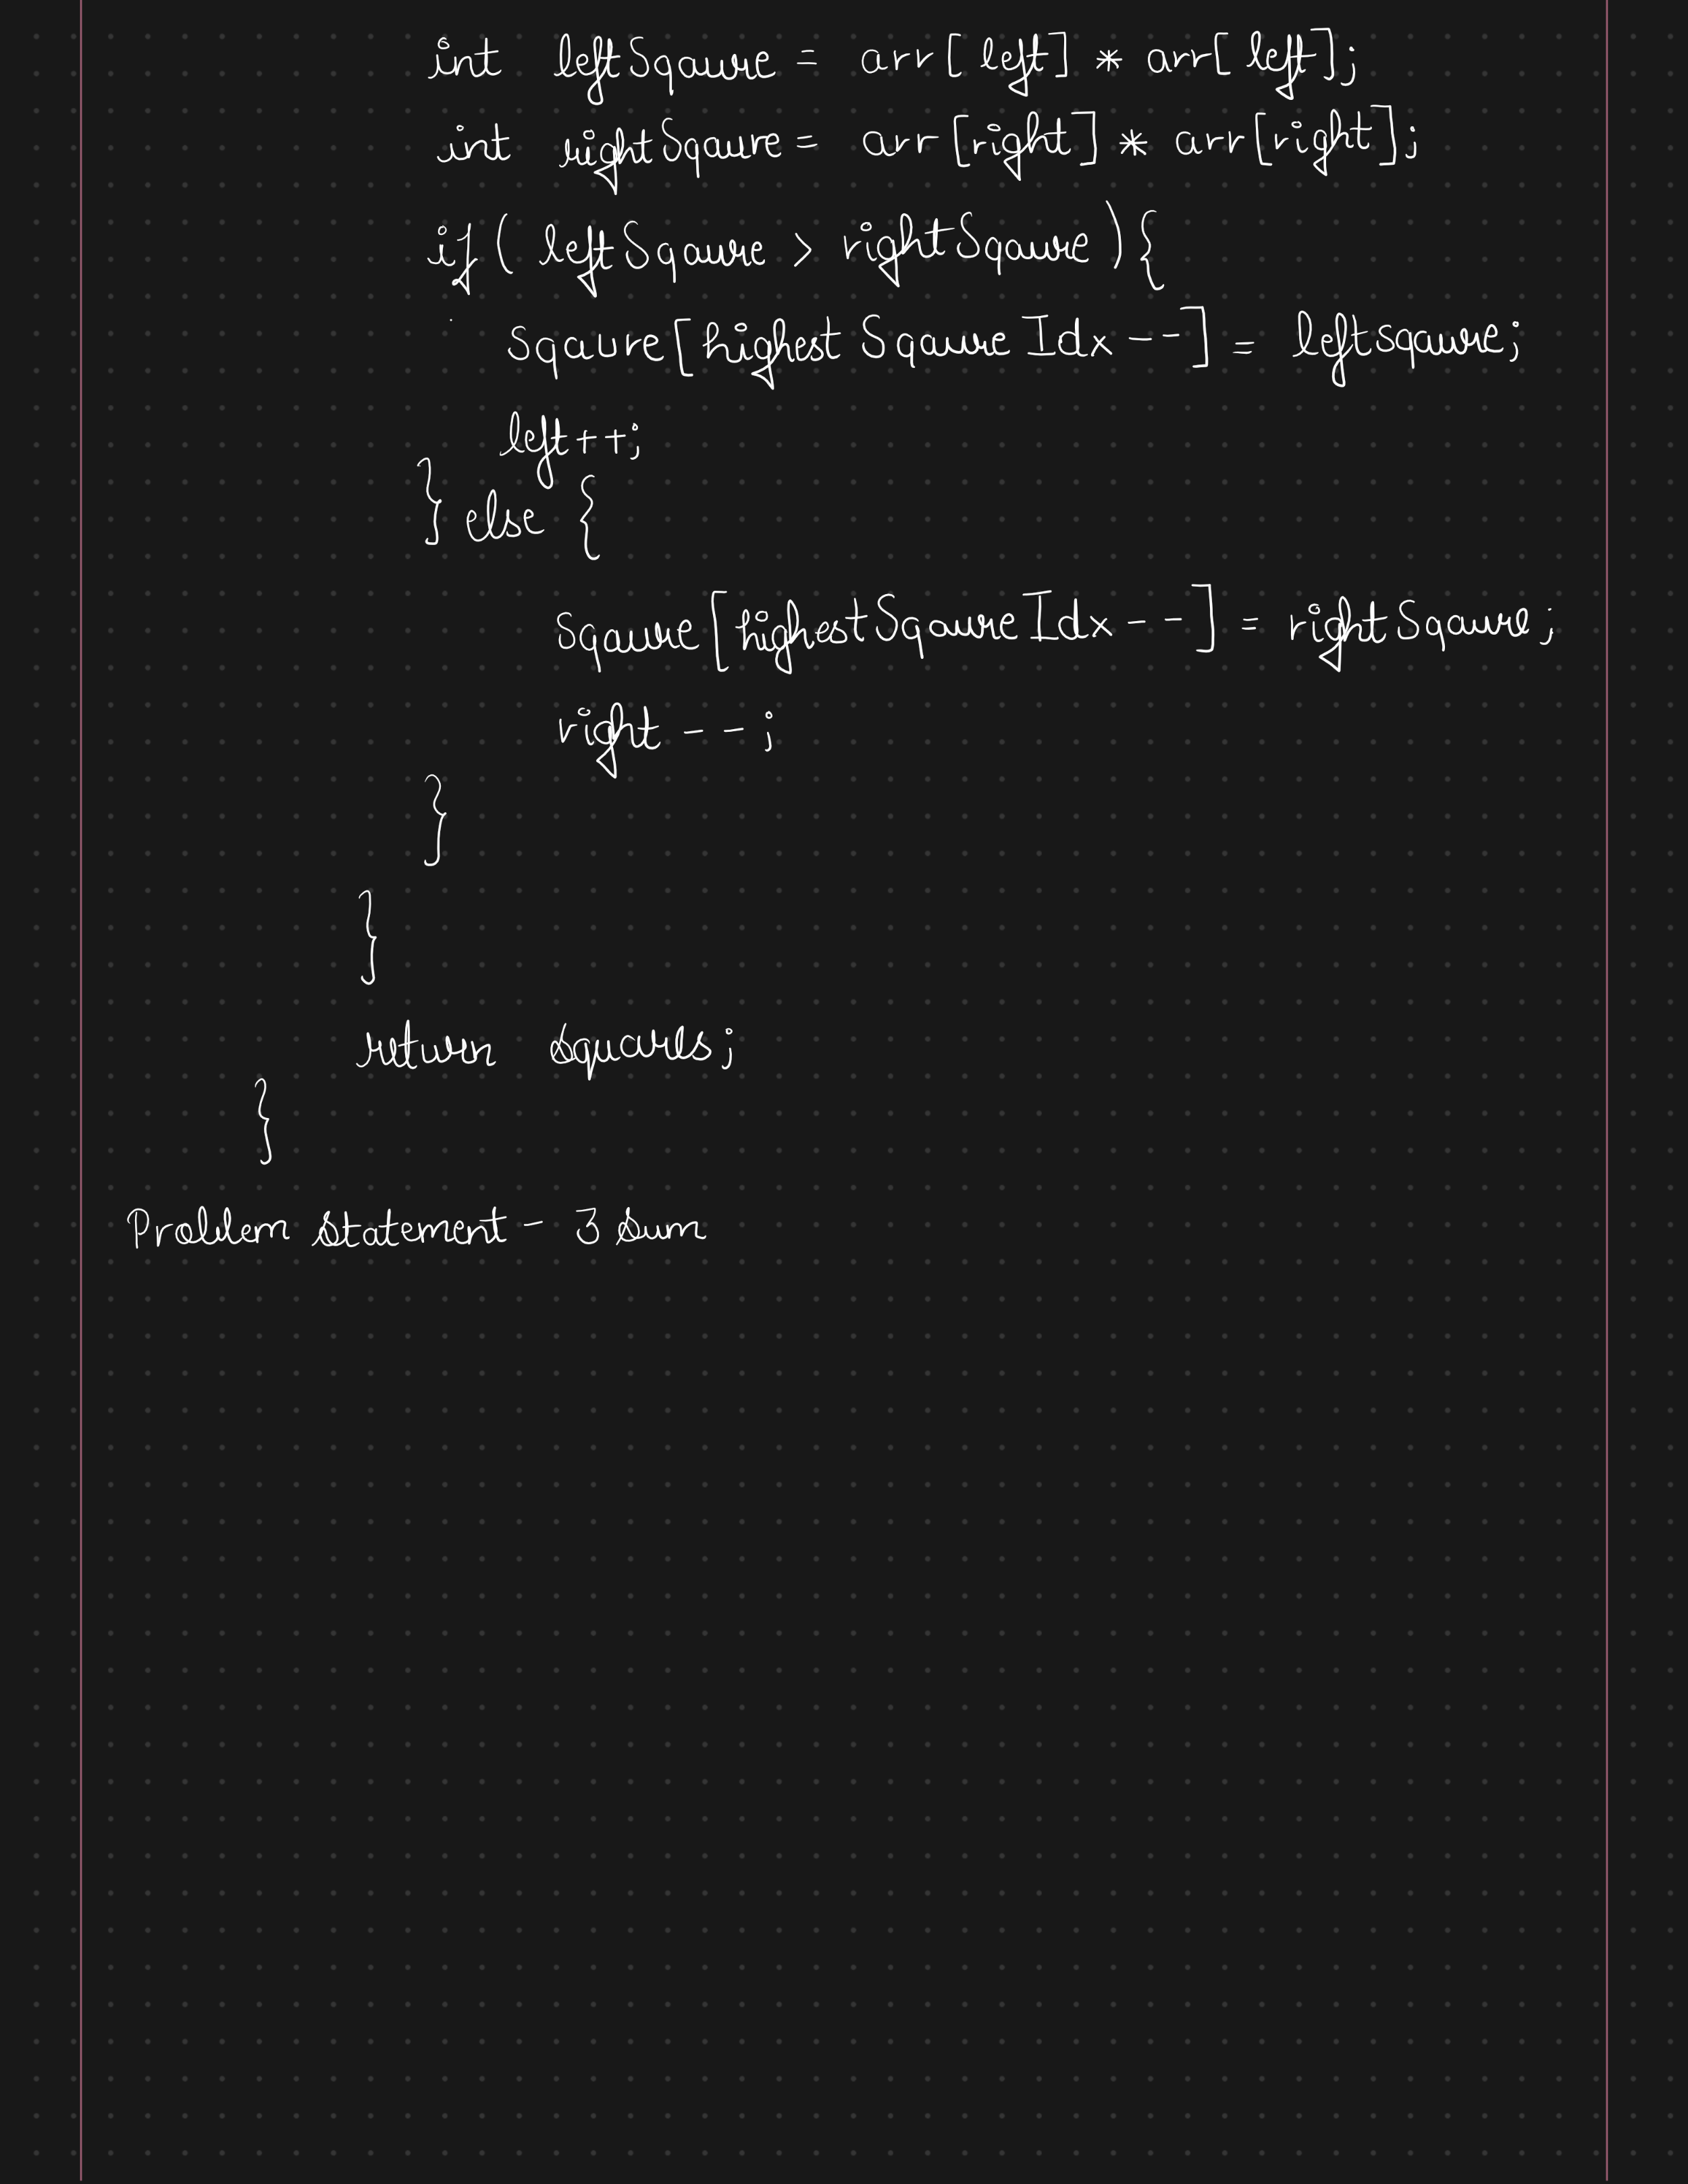 int leftSqaure = arr[left] * arr[left];
int rightSqaure = arr[right] * arr[right];
if( leftSqaure > rightSqaure ){
sqaure[highestSqaureIdx--] = leftsqaure;
left++;
} else {
sqaure[highestSqaureIdx--] = rightSqaure;
right--;
}
}
return squares;
}
Problem statement - 3 sum